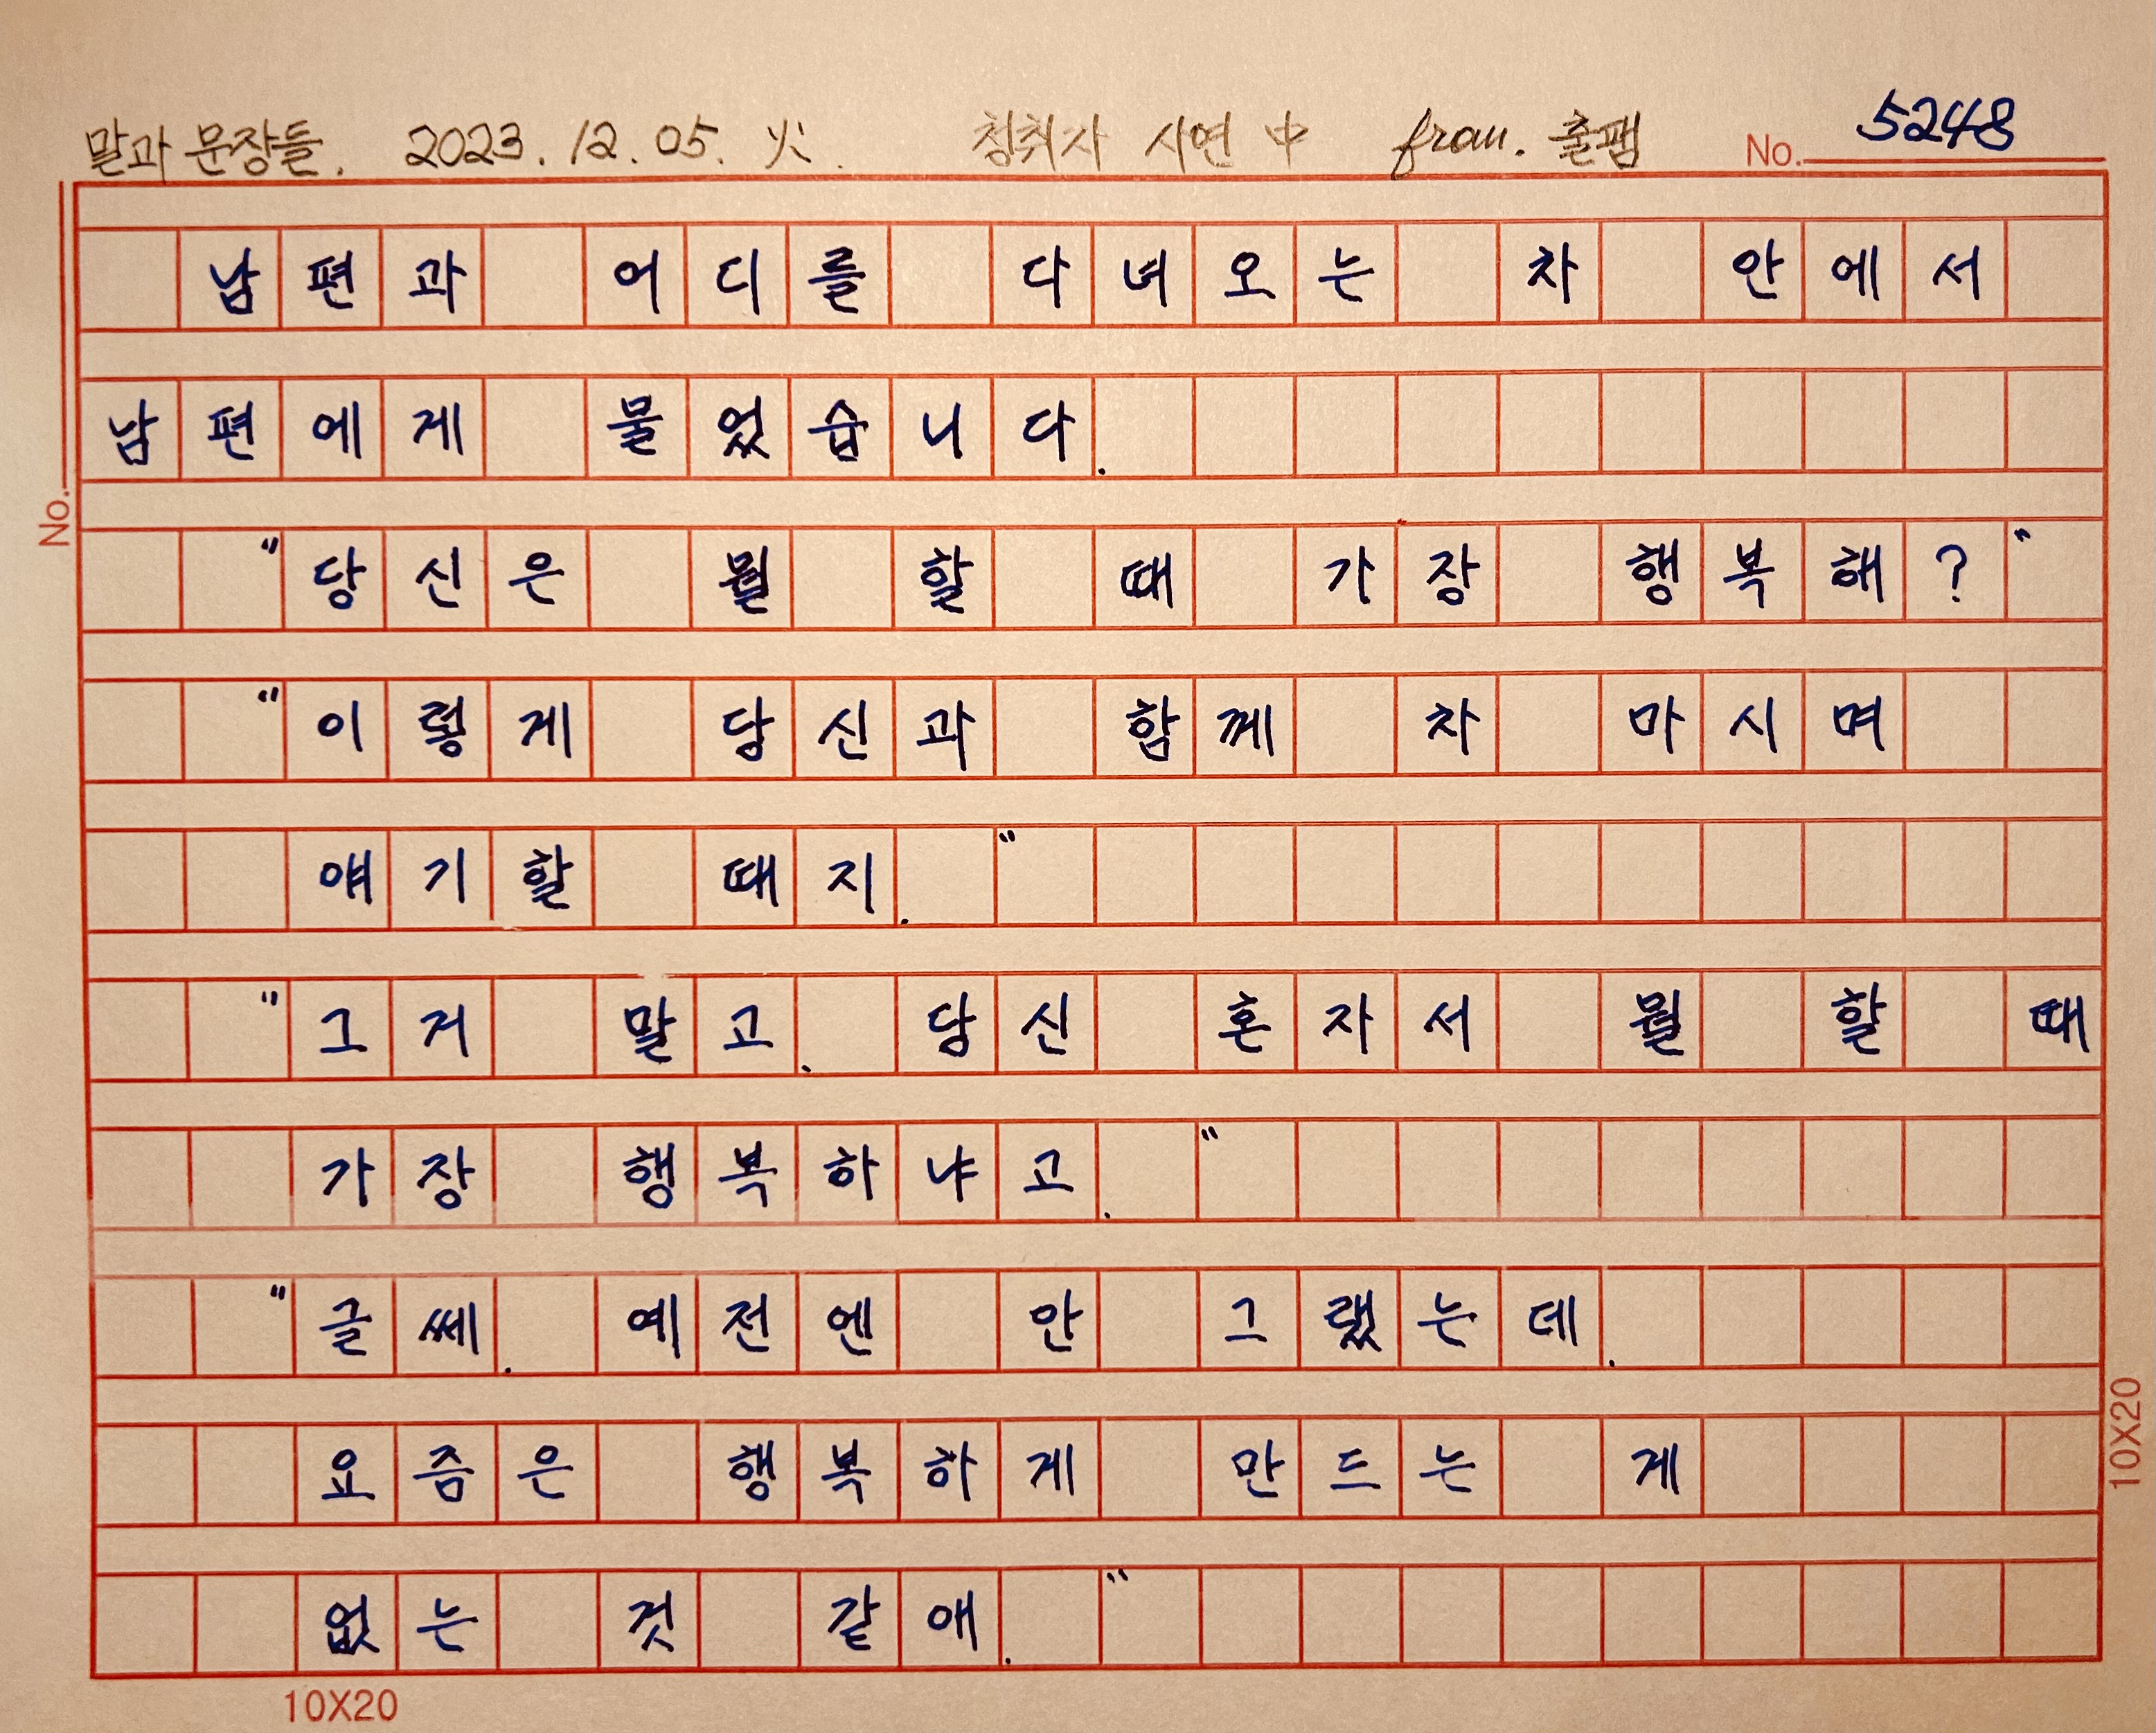 말과 문장들. 2023. 12. 05. 火. 청취자 사연 中 from. 출팸 No. 5248
남편과 어디를 다녀오는 차 안에서
남편에게 물었습니다.
No.
"당신은 뭘 할 때 가장 행복해?"
"이렇게 당신과 함께 차 마시며
얘기할 때지."
"그거 말고. 당신 혼자서 뭘 할 때
가장 행복하냐고."
"글쎄. 예전엔 안 그랬는데.
요즘은 행복하게 만드는 게
10X20
없는 것 같애."
10X20